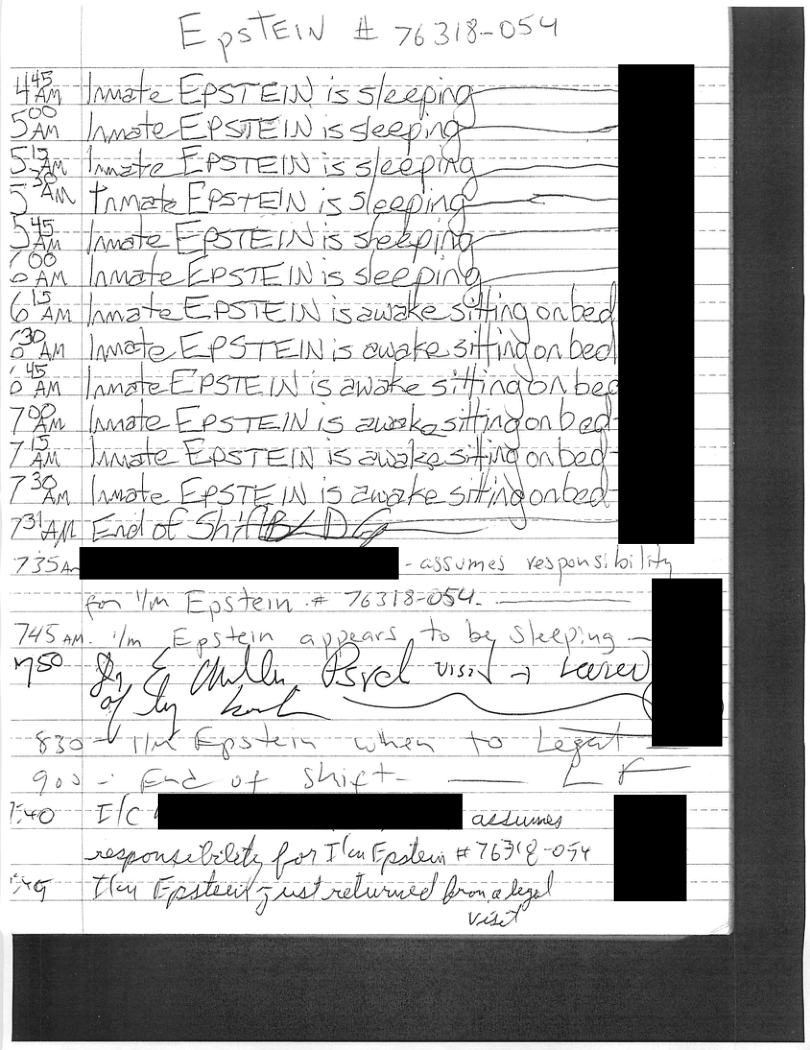 EpSTEIN # 76318-054
4:45 AM Inmate EPSTEIN is sleeping
5:00 AM Inmate EPSTEIN is sleeping
5:15 AM Inmate EPSTEIN is sleeping
5:30 AM Inmate EPSTEIN is sleeping
5:45 AM Inmate EPSTEIN is sleeping
6:00 AM Inmate EPSTEIN is sleeping
6:15 AM Inmate EPSTEIN is awake sitting on bed
6:30 AM Inmate EPSTEIN is awake sitting on bed
6:45 AM Inmate EPSTEIN is awake sitting on bed
7:00 AM Inmate EPSTEIN is awake sitting on bed
7:15 AM Inmate EPSTEIN is awake sitting on bed
7:30 AM Inmate EPSTEIN is awake sitting on bed
7:31 AM End of Shift
735 AM - assumes responsibility
for I/m Epstein # 76318-054.
745 AM. I/m Epstein appears to be sleeping
750 Dr Psych visit
830 - I/m Epstein when to Legal
900 - End of shift -
:40 I/C assumes
responsibility for I/m Epstein # 76318-054
I/m Epstein just returned from a legal
visit